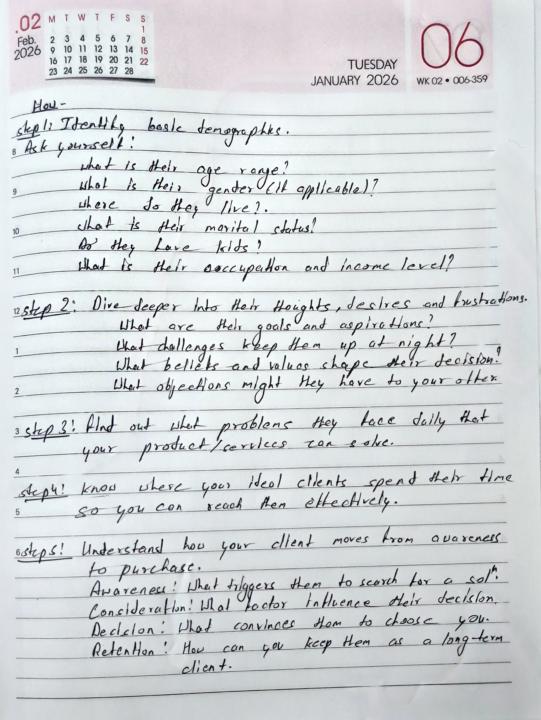 .02
Feb.
2026
M T W T F S S
1
2 3 4 5 6 7 8
9 10 11 12 13 14 15
16 17 18 19 20 21 22
23 24 25 26 27 28
06
TUESDAY
JANUARY 2026
WK 02 • 006-359
How -
step1: Identify basic demographics.
8 Ask yourself:
What is their age range?
9 What is their gender (if applicable)?
Where do they live?.
10 What is their marital status?
Do they have kids?
11 What is their occupation and income level?
12 step 2: Dive deeper into their thoights, desires and frustrations.
What are their goals and aspirations?
1 What challenges keep them up at night?
What beliefs and values shape their decision?
2 What objections might they have to your offer
3 step 3: Find out what problems they face daily that
your product/services can solve.
4
step4: Know where your ideal clients spend their time
5 so you can reach them effectively.
6 step5: Understand how your client moves from awareness
to purchase.
Awareness: What triggers them to search for a solⁿ.
Consideration: What factor influence their decision.
Decision: What convinces them to choose you.
Retention: How can you keep them as a long-term
client.